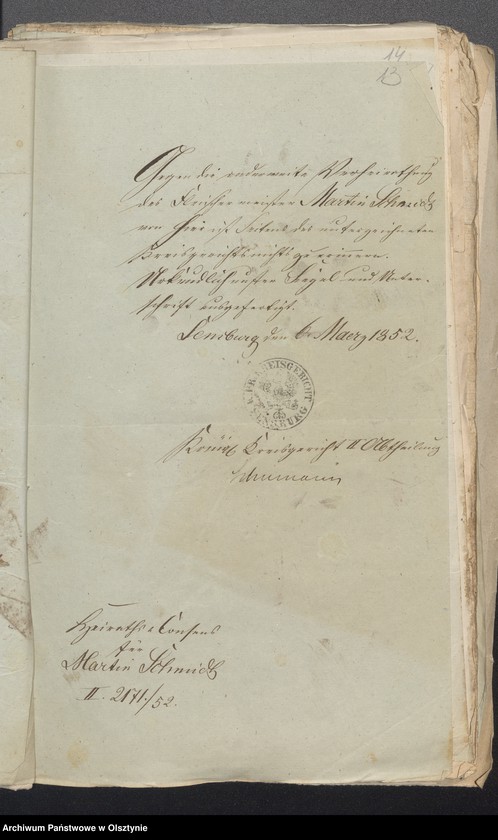 14
13
Gegen die anderweite Verheirathung
des Fleischermeister Martin Schmidt
von hier ist Seitens des unterzeichneten
Kreisgerichts nichts zu erinnern.
Urkundlich unter Siegel und Unter-
schrift ausgefertigt.
Sensburg den 6 Maerz 1852.
KREISGERICHT
SENSBURG
Königl Kreisgericht II Abtheilung
Heiraths-Consens
für
Martin Schmidt
II. 2171./52.
Archiwum Państwowe w Olsztynie